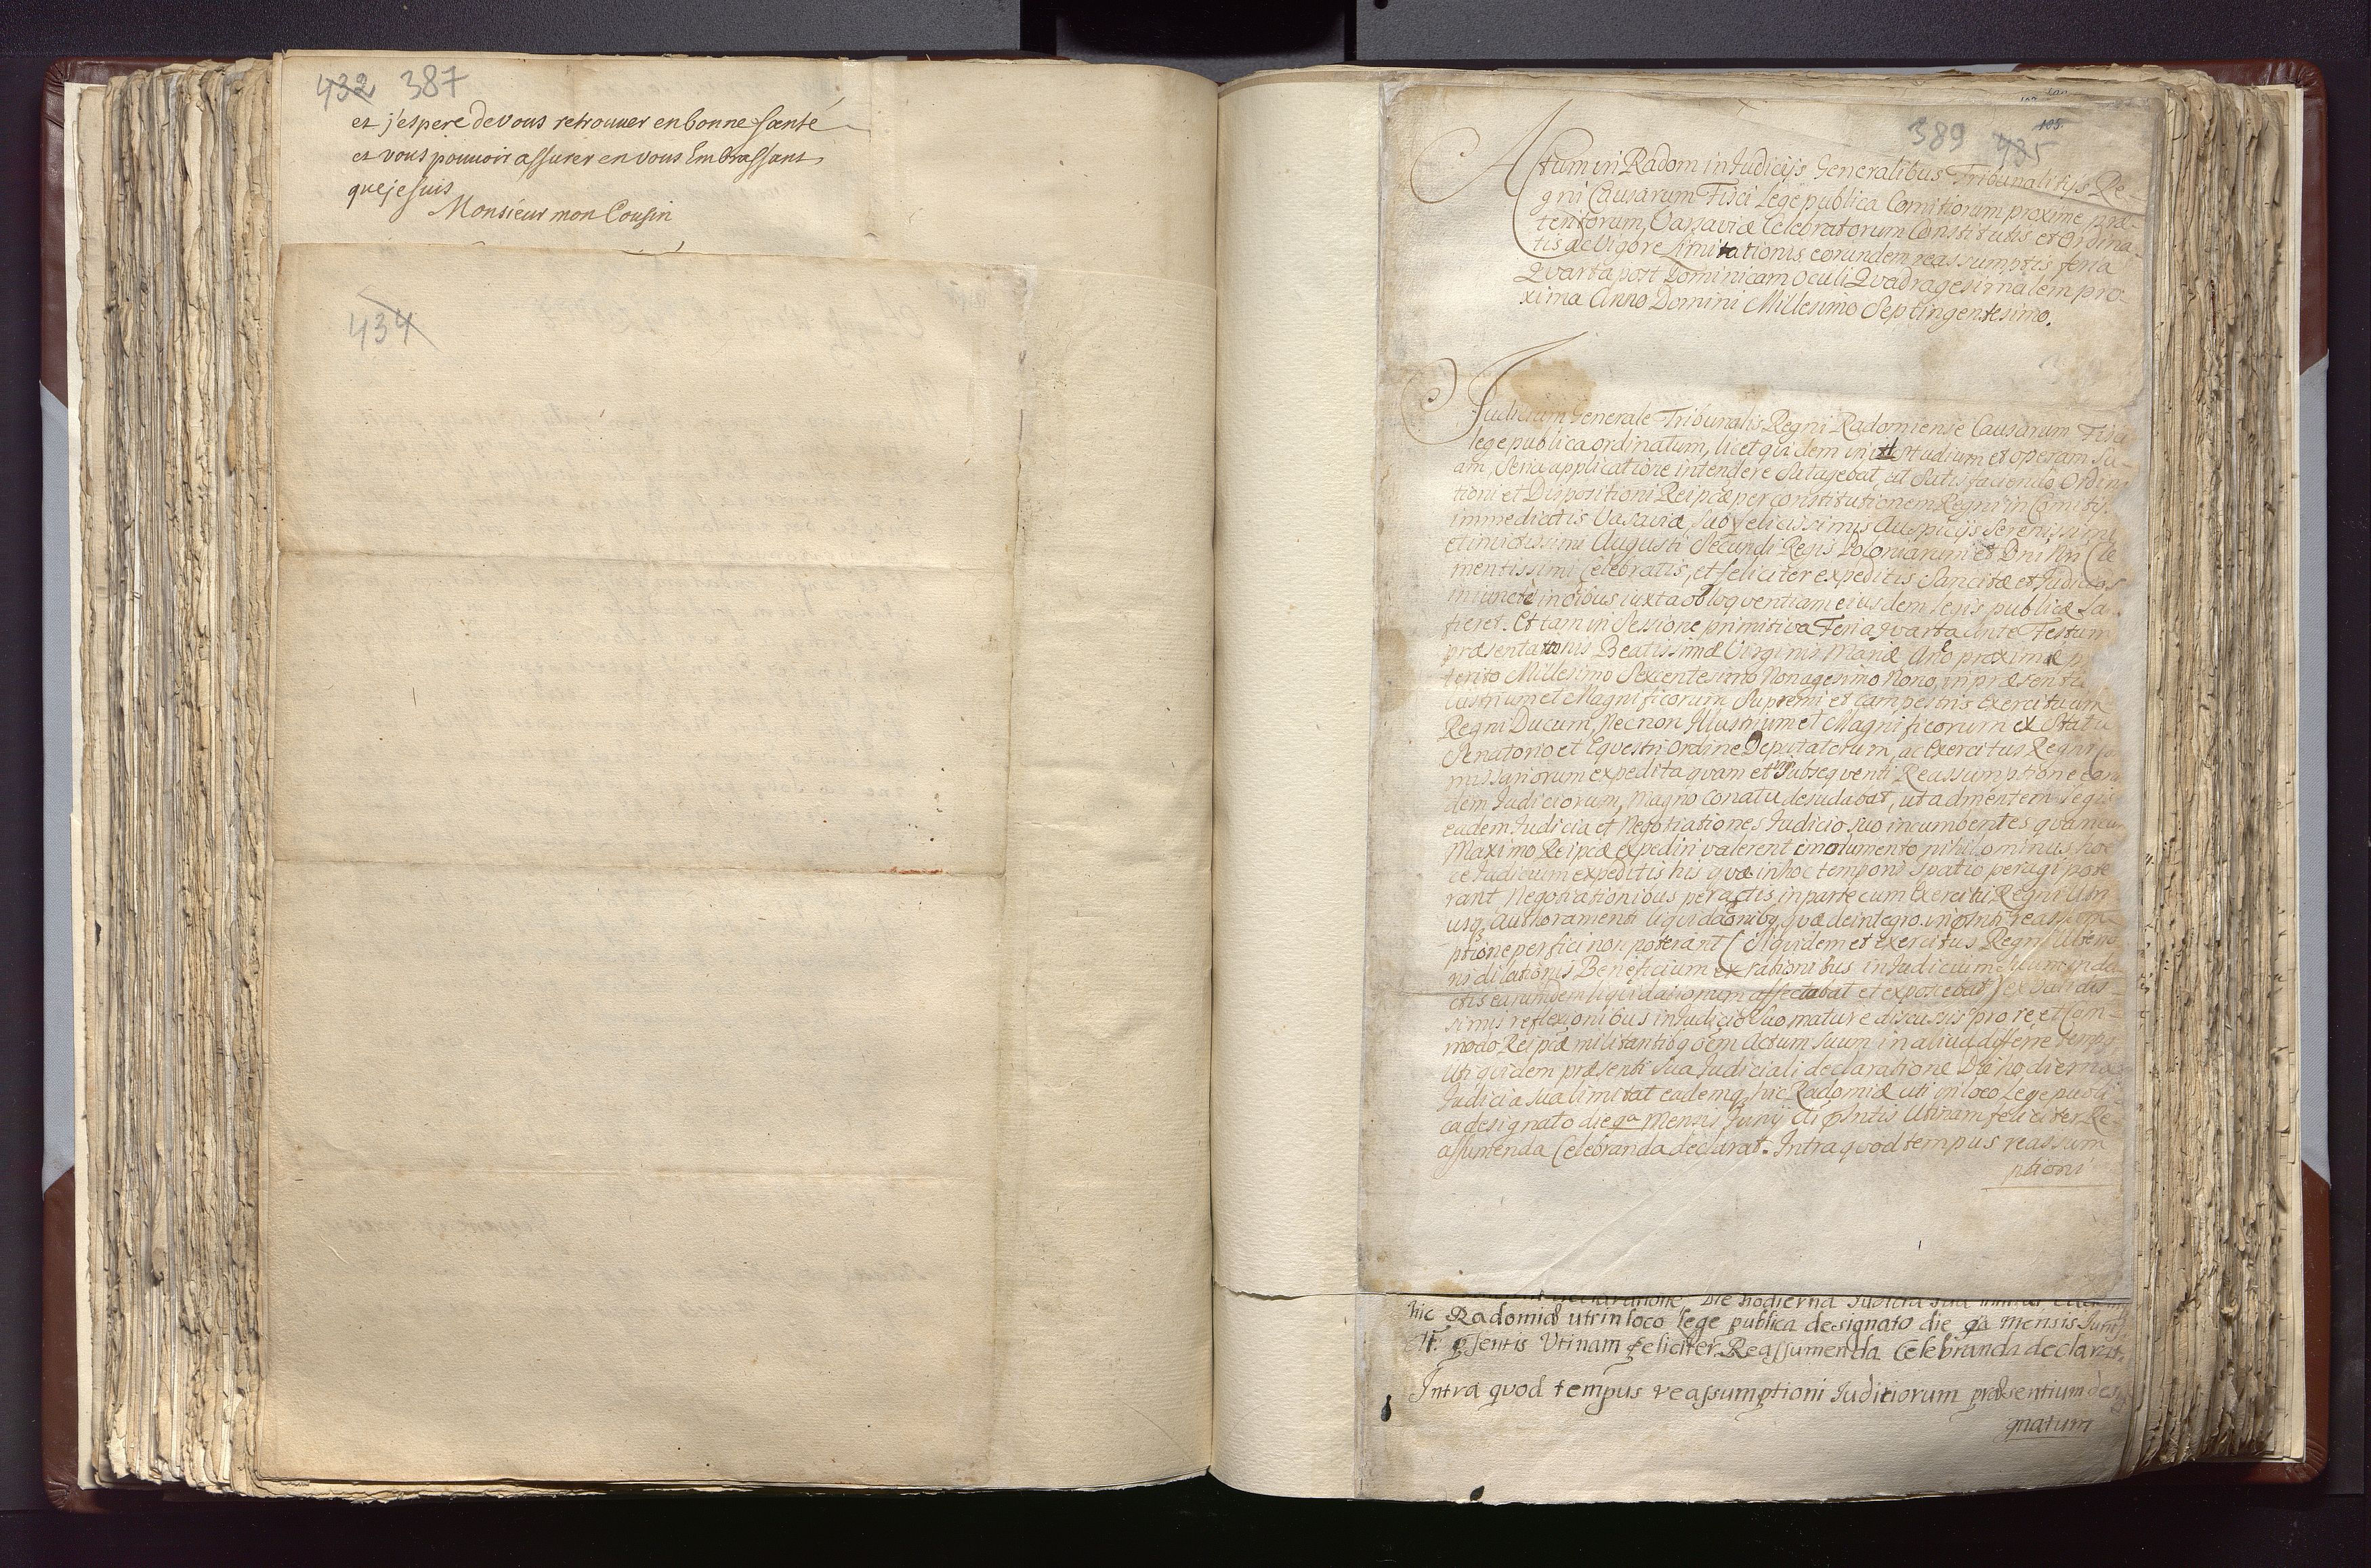 432 387
et j'espere de vous retrouuer en bonne santé
et vous pouuoir assurer en vous Embrassant
que je suis
Monsieur mon Cousin
434
389 435
105.
Actum in Radom in Judicijs Generalibus Tribunalitijs Re-
gni Causarum Fisci Lege publica Comitiorum proxime præ-
teritorum, Varsaviæ Celebratorum Constitutis et Ordina-
tis ac Vigore limitationis eorundem reassumptis feria
Qvarta post Dominicam Oculi Qvadragesimalem pro-
xima Anno Domini Millesimo Septingentesimo.
Judicium Generale Tribunalis Regni Radomiense Causarum Fisci
lege publica ordinatum, licet qvidem in id studium et operam su-
am, seria applicatione intendere satagebat, ut satisfaciendo Ordina
tioni et Dispositioni Reipcæ per constitutionem Regni in Comitijs
immediatis Varsaviæ sub felicissimis Auspicijs Serenissimi
et invictissimi Augusti Secundi Regis Poloniarum et Dni Nri Cle
mentissimi Celebratis, et feliciter expeditis Sancitæ et Judicios
iniunctæ in oibus iuxta obloqventiam eiusdem legis publicæ sa-
fieret. Et tam in Sessione primitiva Feria qvarta ante Festum
præsentationis Beatissimæ Virginis Mariæ Ano proxime p
terito Millesimo Sexcentesimo Nonagesimo Nono, in præsentia
lustrium et Magnificorum Supremi et Campestris Exercituum
Regni Ducum, Necnon Illustrium et Magnificorum ex Statu
Senatorio et Eqvestri Ordine Deputatorum, ac Exercitus Regni Co
missariorum expedita qvam et in subseqventi Reassumptione eorun
dem Judiciorum, Magno conatu desudabat, ut ad mentem legis
eadem Judicia et Negotiationes Judicio suo incumbentes qvam cum
Maximo Reipcæ expediri valerent emolumento nihilominus hoc
ce Judicium expeditis his qvæ in hoc temporis spatio peragi pote
rant Negotiationibus peractis in parte cum Exercitu Regni Utri
usq; Authoramenti liqvidaonibq, qvæ de integro in pstnti reassum-
ptione perfici non poterant (Siqvidem et exercitus Regni Ulterio
ris dilationis Beneficium ex rationibus in Judicium suum indu
ctis earundem liqvidationum affectabat et exposcebat) ex validis-
simis reflexionibus in Judicio suo mature discussis pro re et Com-
modo Reipcæ militantisq; oem Actum suum in aliud differre tempq
Uti qvidem præsenti sua Judiciali declaratione Die hodierna
Judicia sua limitat eademq; hic Radomiæ uti in loco Lege publi-
ca designato die 9a Mensis Junij Ai pstntis Utinam feliciter Re-
assumenda Celebranda declarat. Intra qvod tempus reassum
ptioni
declaratione Die hodierna Judicia sua limitat eademq
hic Radomiæ uti in loco lege publica designato die 9a mensis Junij
Ai psentis Utinam feliciter Reassumenda Celebranda declarat.
Intra quod tempus reassumptioni Iudiciorum præsentium desi
gnatum